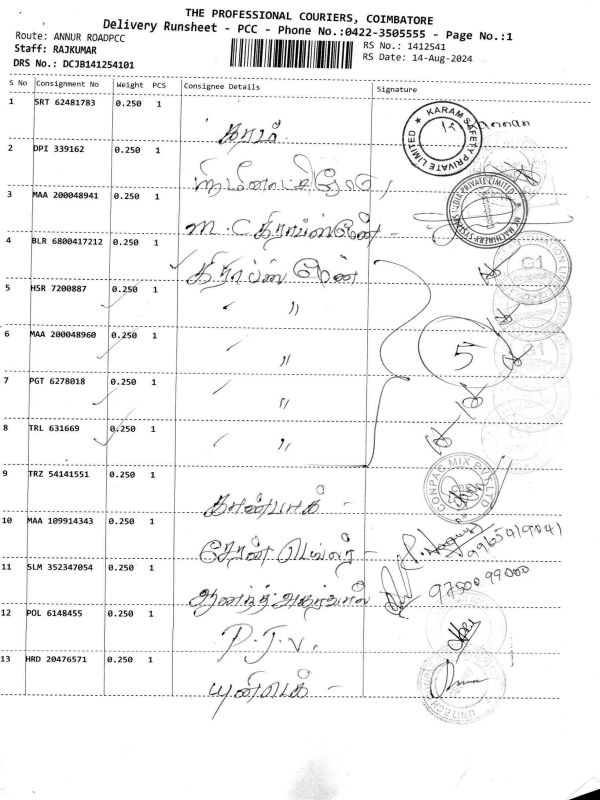 THE PROFESSIONAL COURIERS, COIMBATORE
Delivery Runsheet - PCC - Phone No.:0422-3505555 - Page No.:1
Route: ANNUR ROADPCC
RS No.: 1412541
Staff: RAJKUMAR
RS Date: 14-Aug-2024
DRS No.: DCJB141254101
S No Consignment No Weight PCS Consignee Details Signature
1 SRT 62481783 0.250 1
KARAM SAFETY PRIVATE LIMITED
கரம்
2 DPI 339162 0.250 1
3 MAA 200048941 0.250 1
MACHINERY SYSTEMS INDIA PRIVATE LIMITED
M.C
4 BLR 6800417212 0.250 1
5 HSR 7200887 0.250 1
"
6 MAA 200048960 0.250 1
5
"
7 PGT 6278018 0.250 1
"
8 TRL 631669 0.250 1
"
9 TRZ 54141551 0.250 1
CONPAC MIX PVT LTD
கான்பாக் -
10 MAA 109914343 0.250 1
9965419041
11 SLM 352347054 0.250 1
97500 99000
ஆனந்த் அகர்வால்
12 POL 6148455 0.250 1
P.J.V.
13 HRD 20476571 0.250 1
யுனிடெக் -